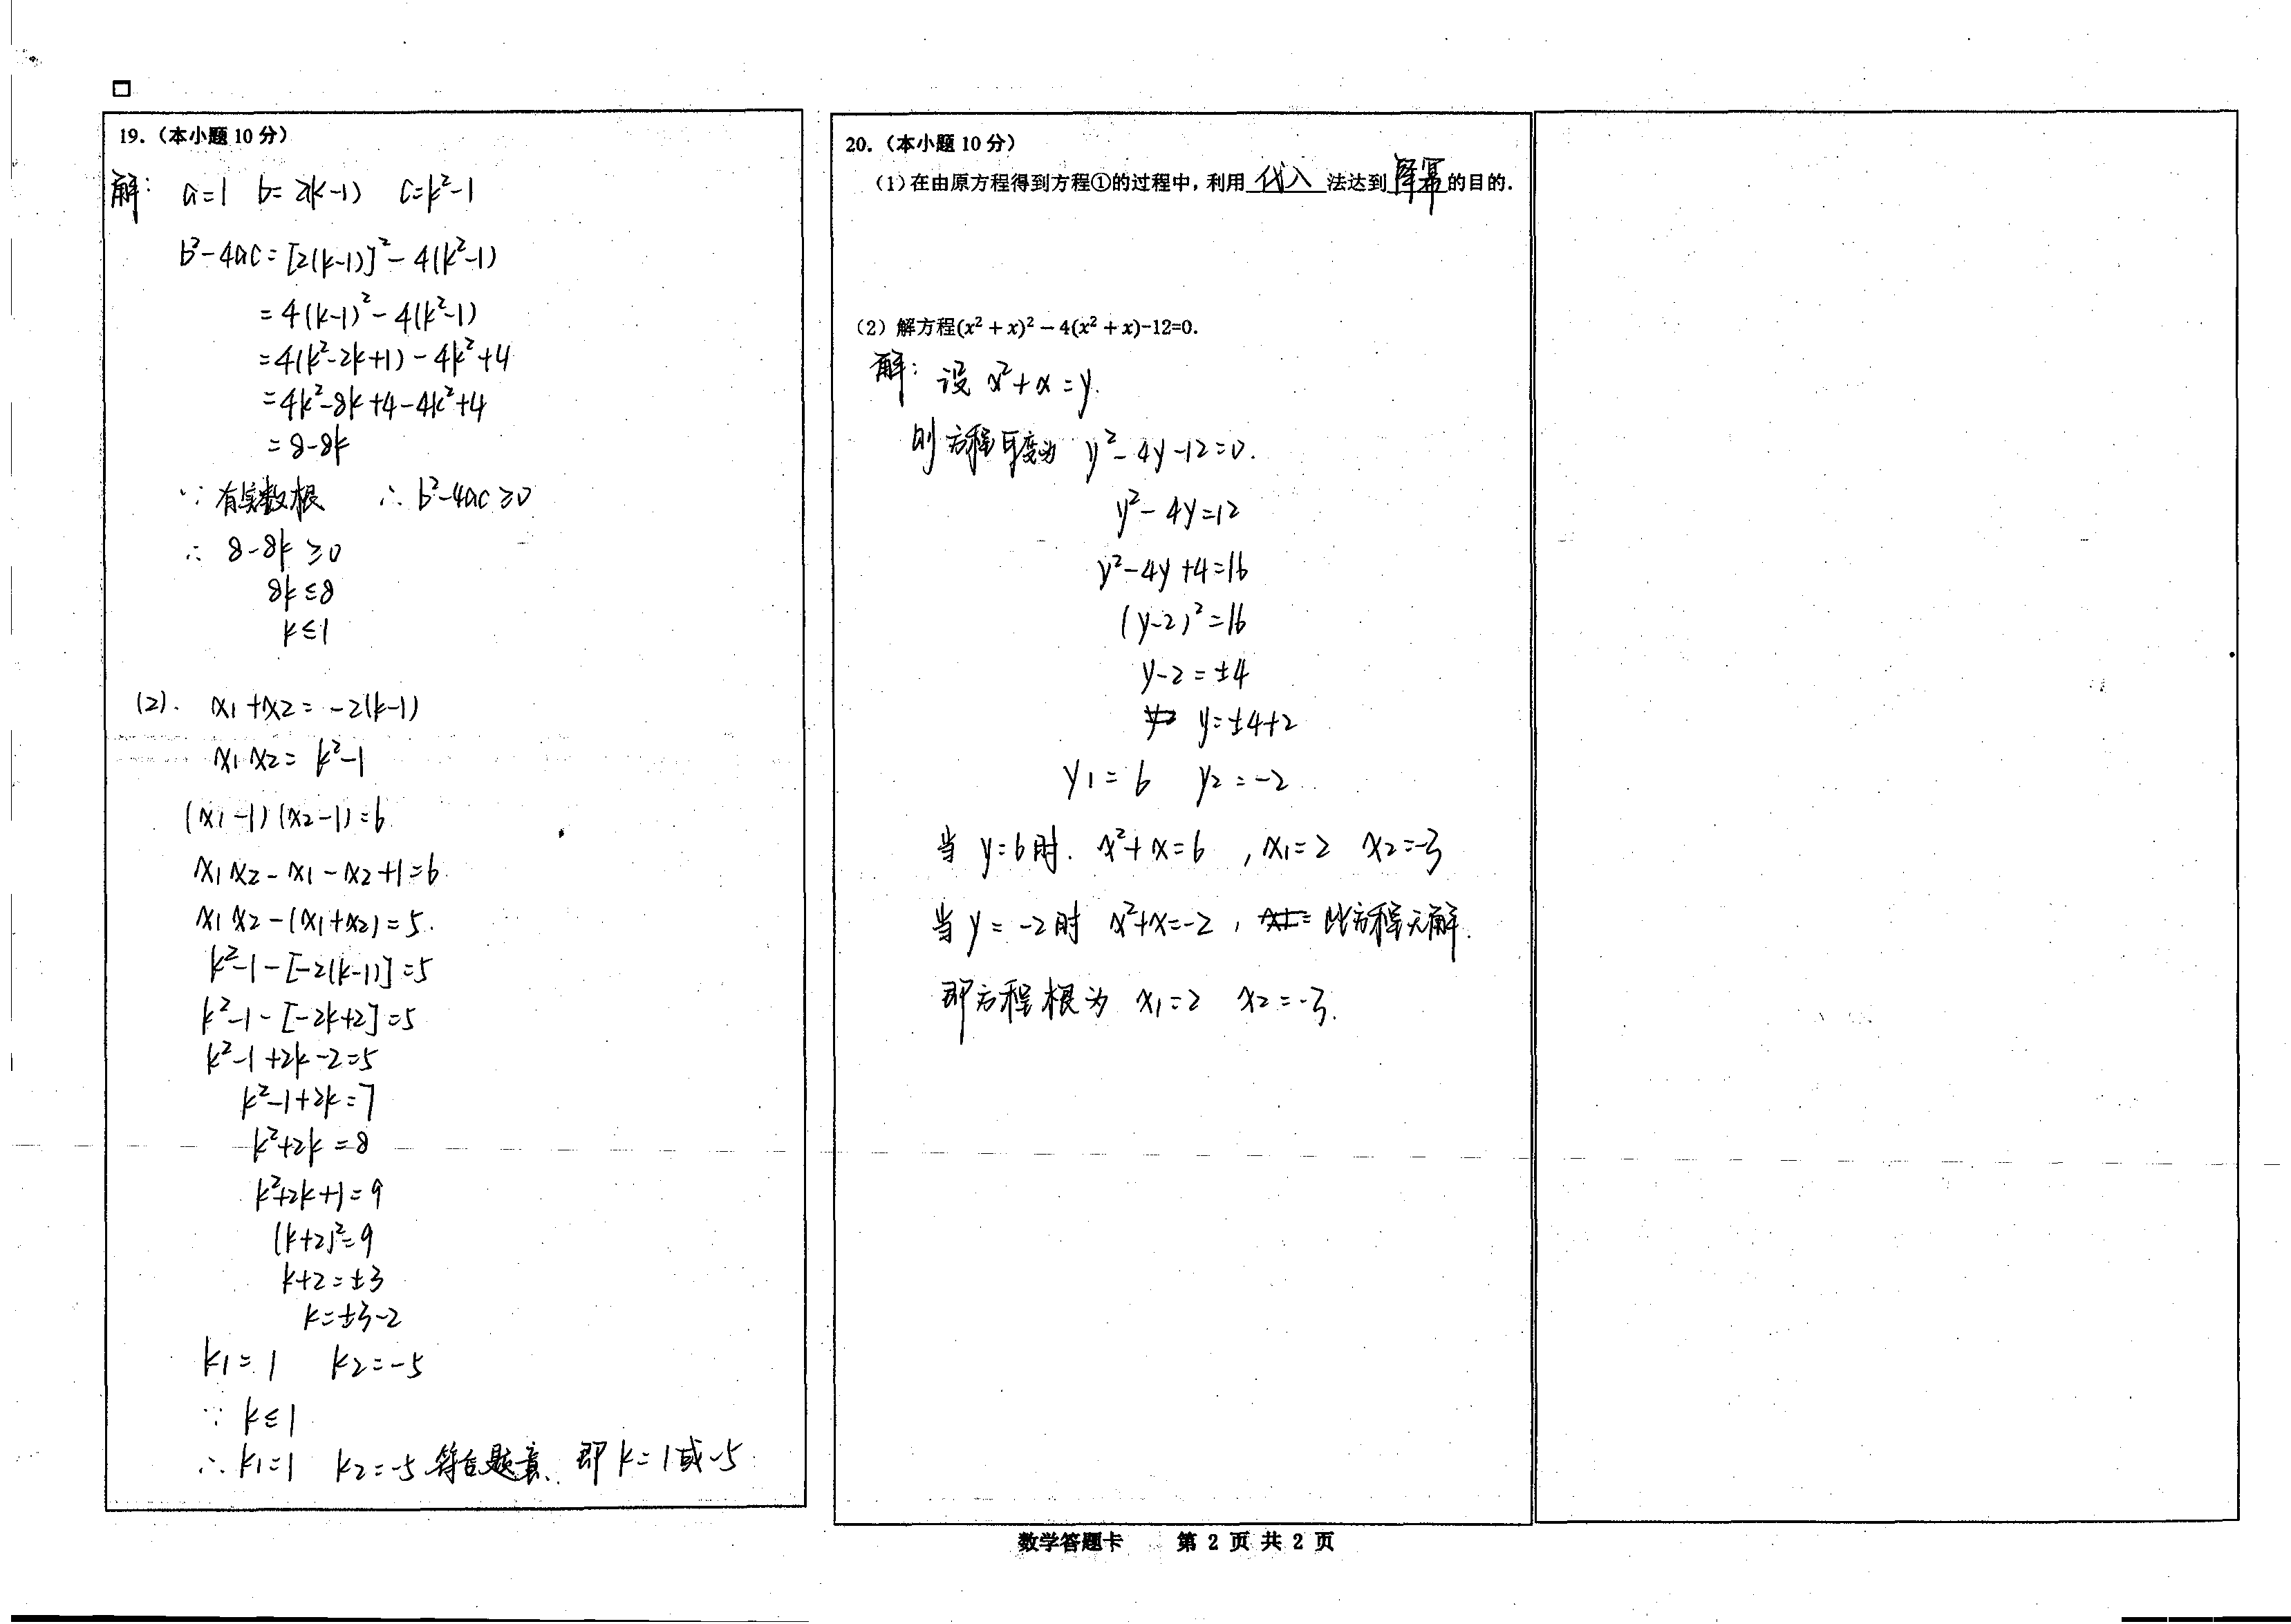 19.（本小题 10 分）
解： a=1 b=2(k-1) c=k²-1
b²-4ac=[2(k-1)]²-4(k²-1)
=4(k-1)²-4(k²-1)
=4(k²-2k+1)-4k²+4
=4k²-8k+4-4k²+4
=8-8k
∵ 有实数根 ∴ b²-4ac≥0
∴ 8-8k≥0
8k≤8
k≤1
(2). x₁+x₂=-2(k-1)
x₁x₂=k²-1
(x₁-1)(x₂-1)=6
x₁x₂-x₁-x₂+1=6
x₁x₂-(x₁+x₂)=5.
k²-1-[-2(k-1)]=5
k²-1-[-2k+2]=5
k²-1+2k-2=5
k²-1+2k=7
k²+2k=8
k²+2k+1=9
(k+2)²=9
k+2=±3
k=±3-2
k₁=1 k₂=-5
∵ k≤1
∴ k₁=1 k₂=-5 符合题意、即 k=1或-5
20.（本小题 10 分）
（1）在由原方程得到方程①的过程中，利用 代入 法达到 降幂 的目的.
（2）解方程(x² + x)² − 4(x² + x)-12=0.
解： 设 x²+x=y.
则方程可变为 y²-4y-12=0.
y²-4y=12
y²-4y+4=16
(y-2)²=16
y-2=±4
y=±4+2
y₁=6 y₂=-2
当 y=6时. x²+x=6 , x₁=2 x₂=-3
当 y=-2时 x²+x=-2 , 此方程无解.
即方程根为 x₁=2 x₂=-3.
数学答题卡 第 2 页 共 2 页